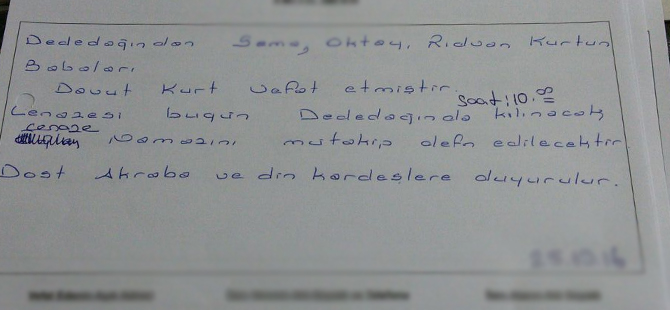 Dededağından Sema, Oktay, Rıdvan Kurtun
Babaları
Davut Kurt vefat etmiştir.
saat: 10.00
Cenazesi bugün Dededağında kılınacak
cenaze
Namazını mutakip defn edilecektir
Dost Akraba ve din kardeşlere duyurulur.